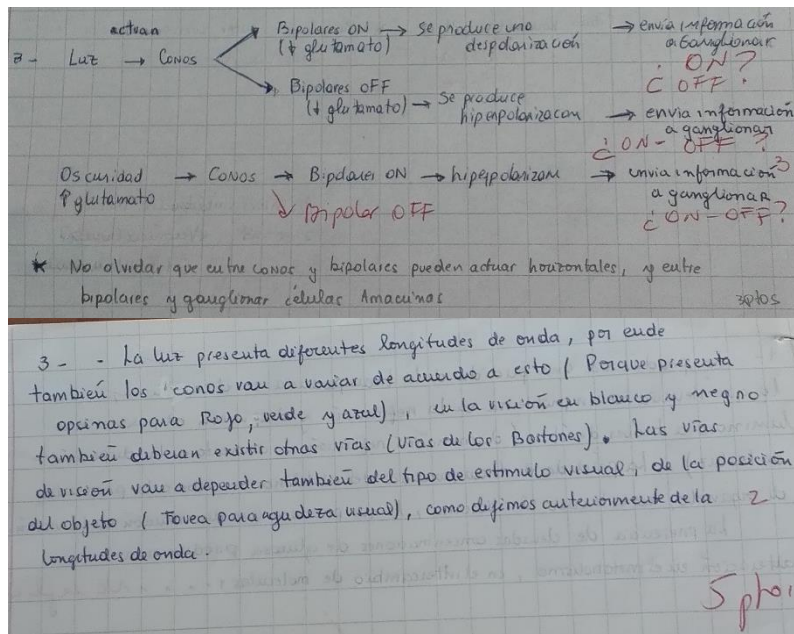 actuan
3- Luz → Conos
Bipolares ON → se produce una → envia información
(↓ glutamato) despolarización a Ganglionar
¿ ON?
¿ OFF?
Bipolares OFF
(↓ glutamato) → Se produce
hiperpolarizacion → envia información
a ganglionar
¿ ON - OFF ?
Oscuridad → Conos → Bipolares ON → hiperpolarizan → envia informacion 3
↑ glutamato a ganglionar
↓ Bipolar OFF ¿ ON-OFF?
* No olvidar que entre conos y bipolares pueden actuar horizontales, y entre
bipolares y ganglionar células Amacrinas 3ptos
3- - La luz presenta diferentes longitudes de onda, por ende
también los conos van a variar de acuerdo a esto ( Porque presenta
opcinas para Rojo, verde y azul), en la visión en blanco y negro
también deberan existir otras vías (vías de los Bastones). Las vías
de vision van a depender también del tipo de estimulo visual, de la posición
del objeto ( Fovea para agudeza visual), como dijimos anteriormente de la 2
longitudes de onda.
5 ptos